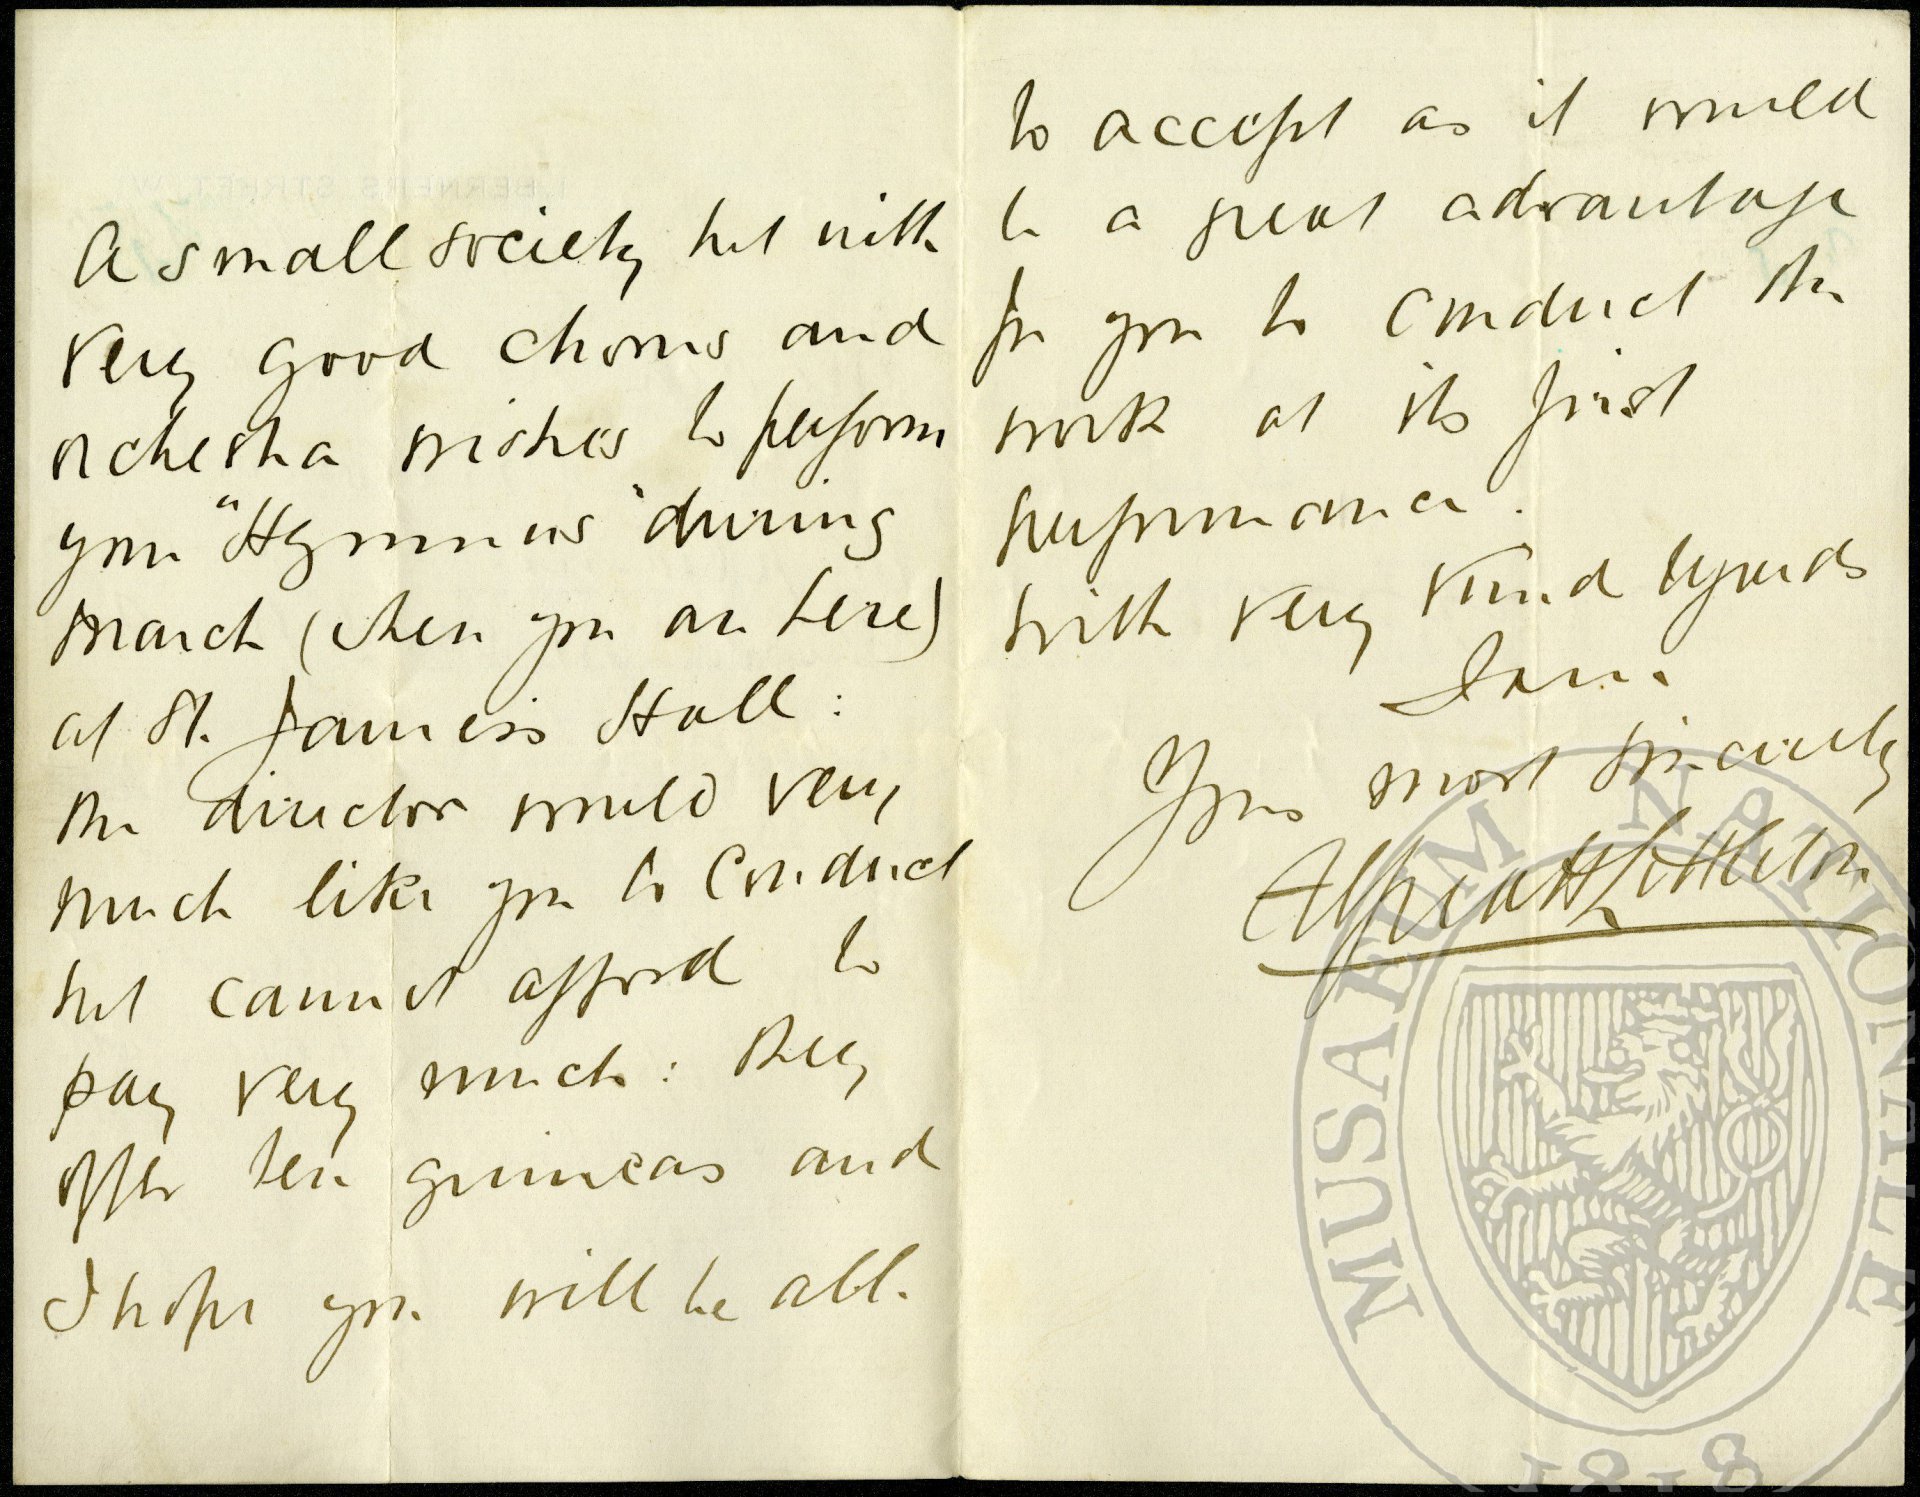 A small society but with
very good chorus and
orchestra wishes to perform
your "Hymnus" during
March (when you are here)
at St. James's Hall:
the director would very
much like you to conduct
but cannot afford to
pay very much: they
offer ten guineas and
I hope you will be able
to accept as it would
be a great advantage
for you to conduct the
work at its first
performance.
With very kind regards
I am
Yours most sincerely
Alfred H Littleton
MUSAEUM NATIONALE
1818